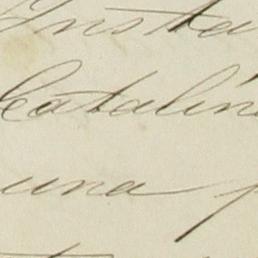 Insta
Catalin
una p